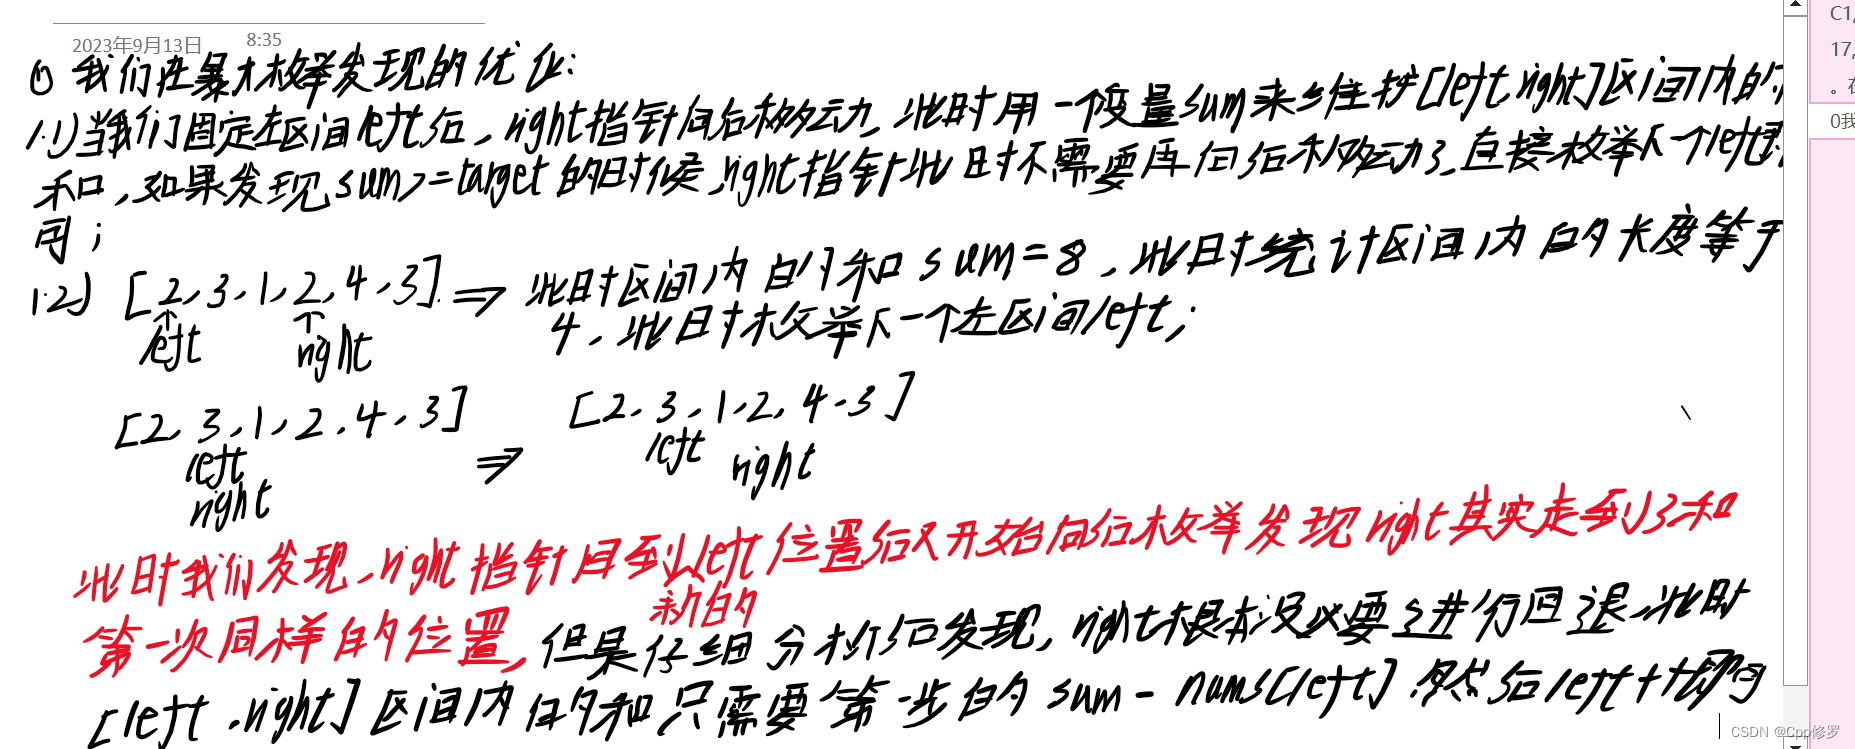 2023年9月13日 8:35
① 我们在暴力枚举发现的优化:
1.1)当我们固定左区间left后,right指针向后移动,此时用一个变量sum来维护[left right]区间内的
和,如果发现sum>=target的时候,right指针此时不需要再向后移动了.直接枚举下一个left即
可;
1.2) [2,3,1,2,4,3] => 此时区间内的和sum=8,此时统计区间内的长度等于
left right 4.此时枚举下一个左区间left;
[2,3,1,2,4,3] => [2,3,1,2,4,3]
left left right
right
此时我们发现,right指针回到left位置后又开始向后枚举发现right其实走到了和
新的
第一次同样的位置,但是仔细分析后发现,right根本没必要进行回退,此时
[left,right]区间内的和只需要第一步的sum-nums[left].然后left++即可
C1,
17,
。在
0我
CSDN @Cpp修罗